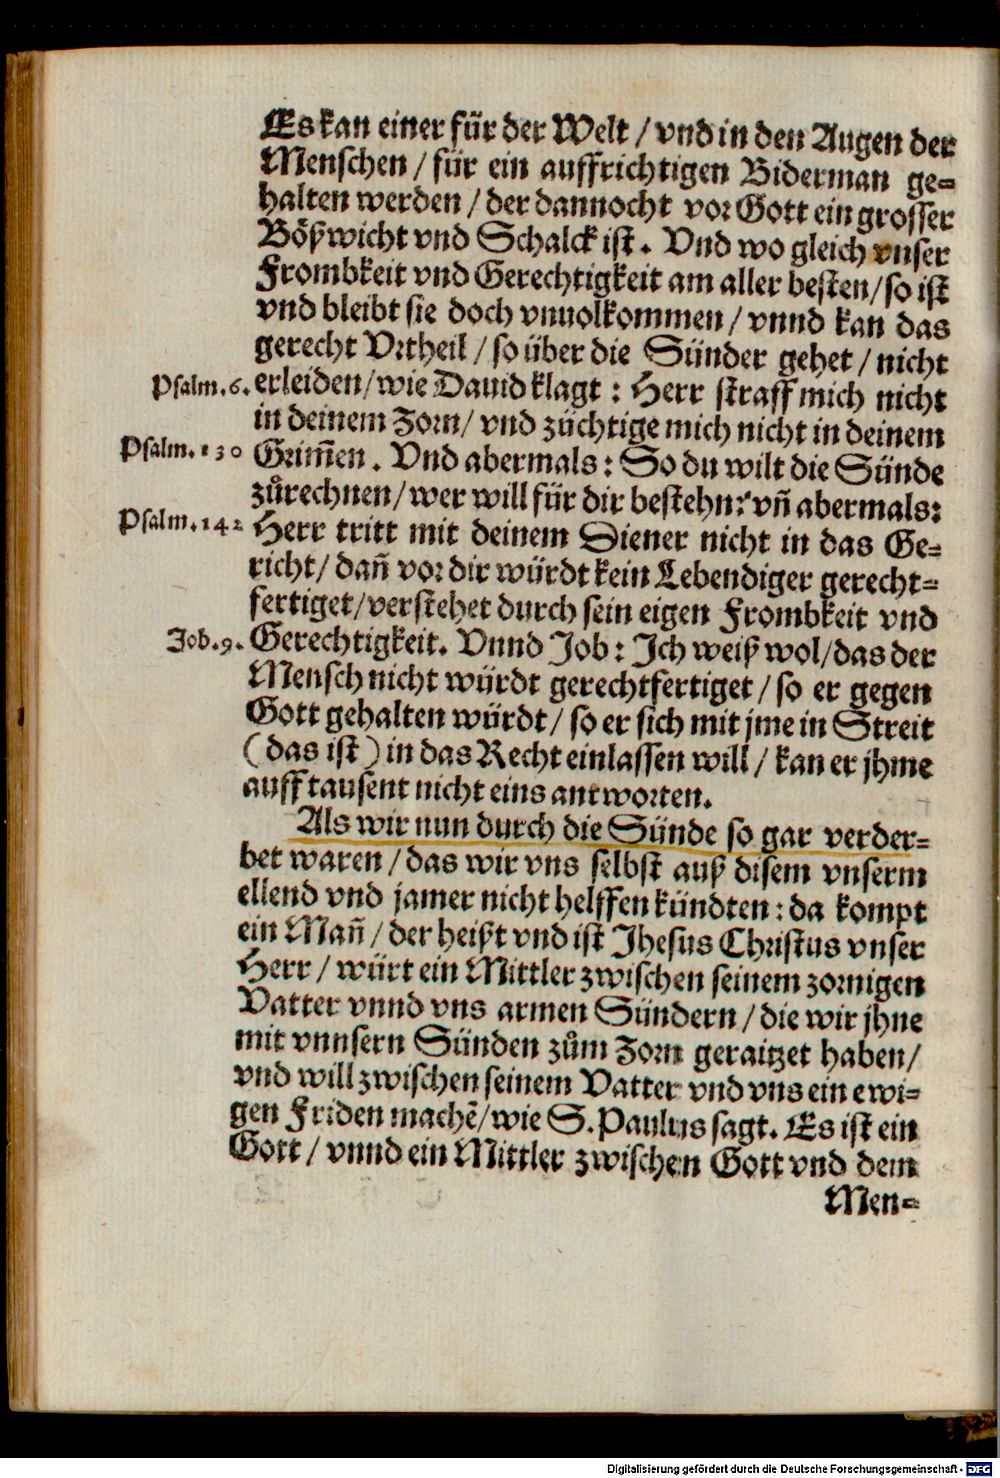 Es kan einer für der Welt / vnd in den Augen der
Menschen / für ein auffrichtigen Biderman ge=
halten werden / der dannocht vor Gott ein grosser
Bößwicht vnd Schalck ist. Vnd wo gleich vnser
Frombkeit vnd Gerechtigkeit am aller besten / so ist
vnd bleibt sie doch vnuolkommen / vnnd kan das
gerecht Vrtheil / so über die Sünder gehet / nicht
Psalm. 6. erleiden / wie Dauid klagt : Herr straff mich nicht
in deinem Zorn / vnd züchtige mich nicht in deinem
Psalm. 130 Grim̃en . Vnd abermals : So du wilt die Sünde
zůrechnen / wer will für dir bestehn? vñ abermals:
Psalm. 142 Herr tritt mit deinem Diener nicht in das Ge=
richt / dañ vor dir würdt kein Lebendiger gerecht=
fertiget / verstehet durch sein eigen Frombkeit vnd
Job. 9. Gerechtigkeit. Vnnd Job : Ich weiß wol / das der
Mensch nicht würdt gerechtfertiget / so er gegen
Gott gehalten würdt / so er sich mit jme in Streit
(das ist) in das Recht einlassen will / kan er jhme
auff tausent nicht eins antworten.
Als wir nun durch die Sünde so gar verder=
bet waren / das wir vns selbst auß disem vnserm
ellend vnd jamer nicht helffen kündten : da kompt
ein Mañ / der heißt vnd ist Jhesus Christus vnser
Herr / würt ein Mittler zwischen seinem zornigen
Vatter vnnd vns armen Sündern / die wir jhne
mit vnnsern Sünden zům Zorn geraitzet haben /
vnd will zwischen seinem Vatter vnd vns ein ewi=
gen Friden machẽ / wie S. Paulus sagt. Es ist ein
Gott / vnnd ein Mittler zwischen Gott vnd dem
Men=
Digitalisierung gefördert durch die Deutsche Forschungsgemeinschaft - DFG